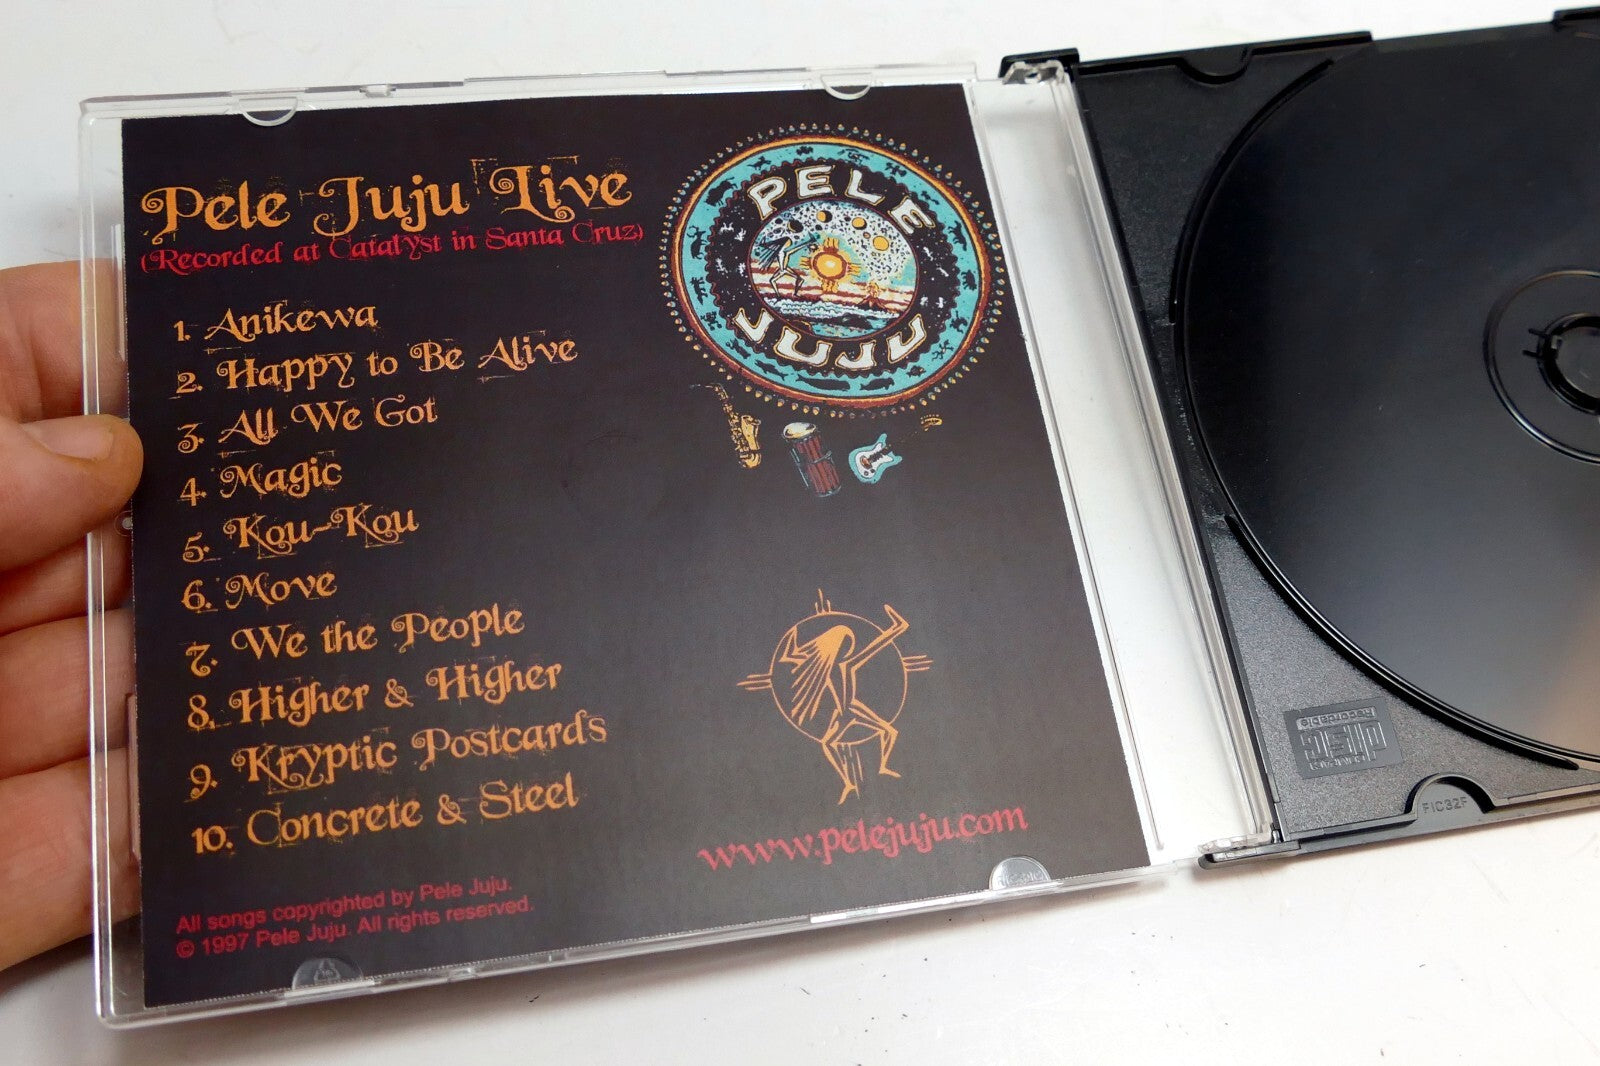 Pele Juju Live
(Recorded at Catalyst in Santa Cruz)
1. Anikewa
2. Happy to Be Alive
3. All We Got
4. Magic
5. Kou-Kou
6. Move
7. We the People
8. Higher & Higher
9. Kryptic Postcards
10. Concrete & Steel
All songs copyrighted by Pele Juju.
© 1997 Pele Juju. All rights reserved.
PELE
JUJU
www.pelejuju.com
COMPACT
disc
Recordable
FIC32F